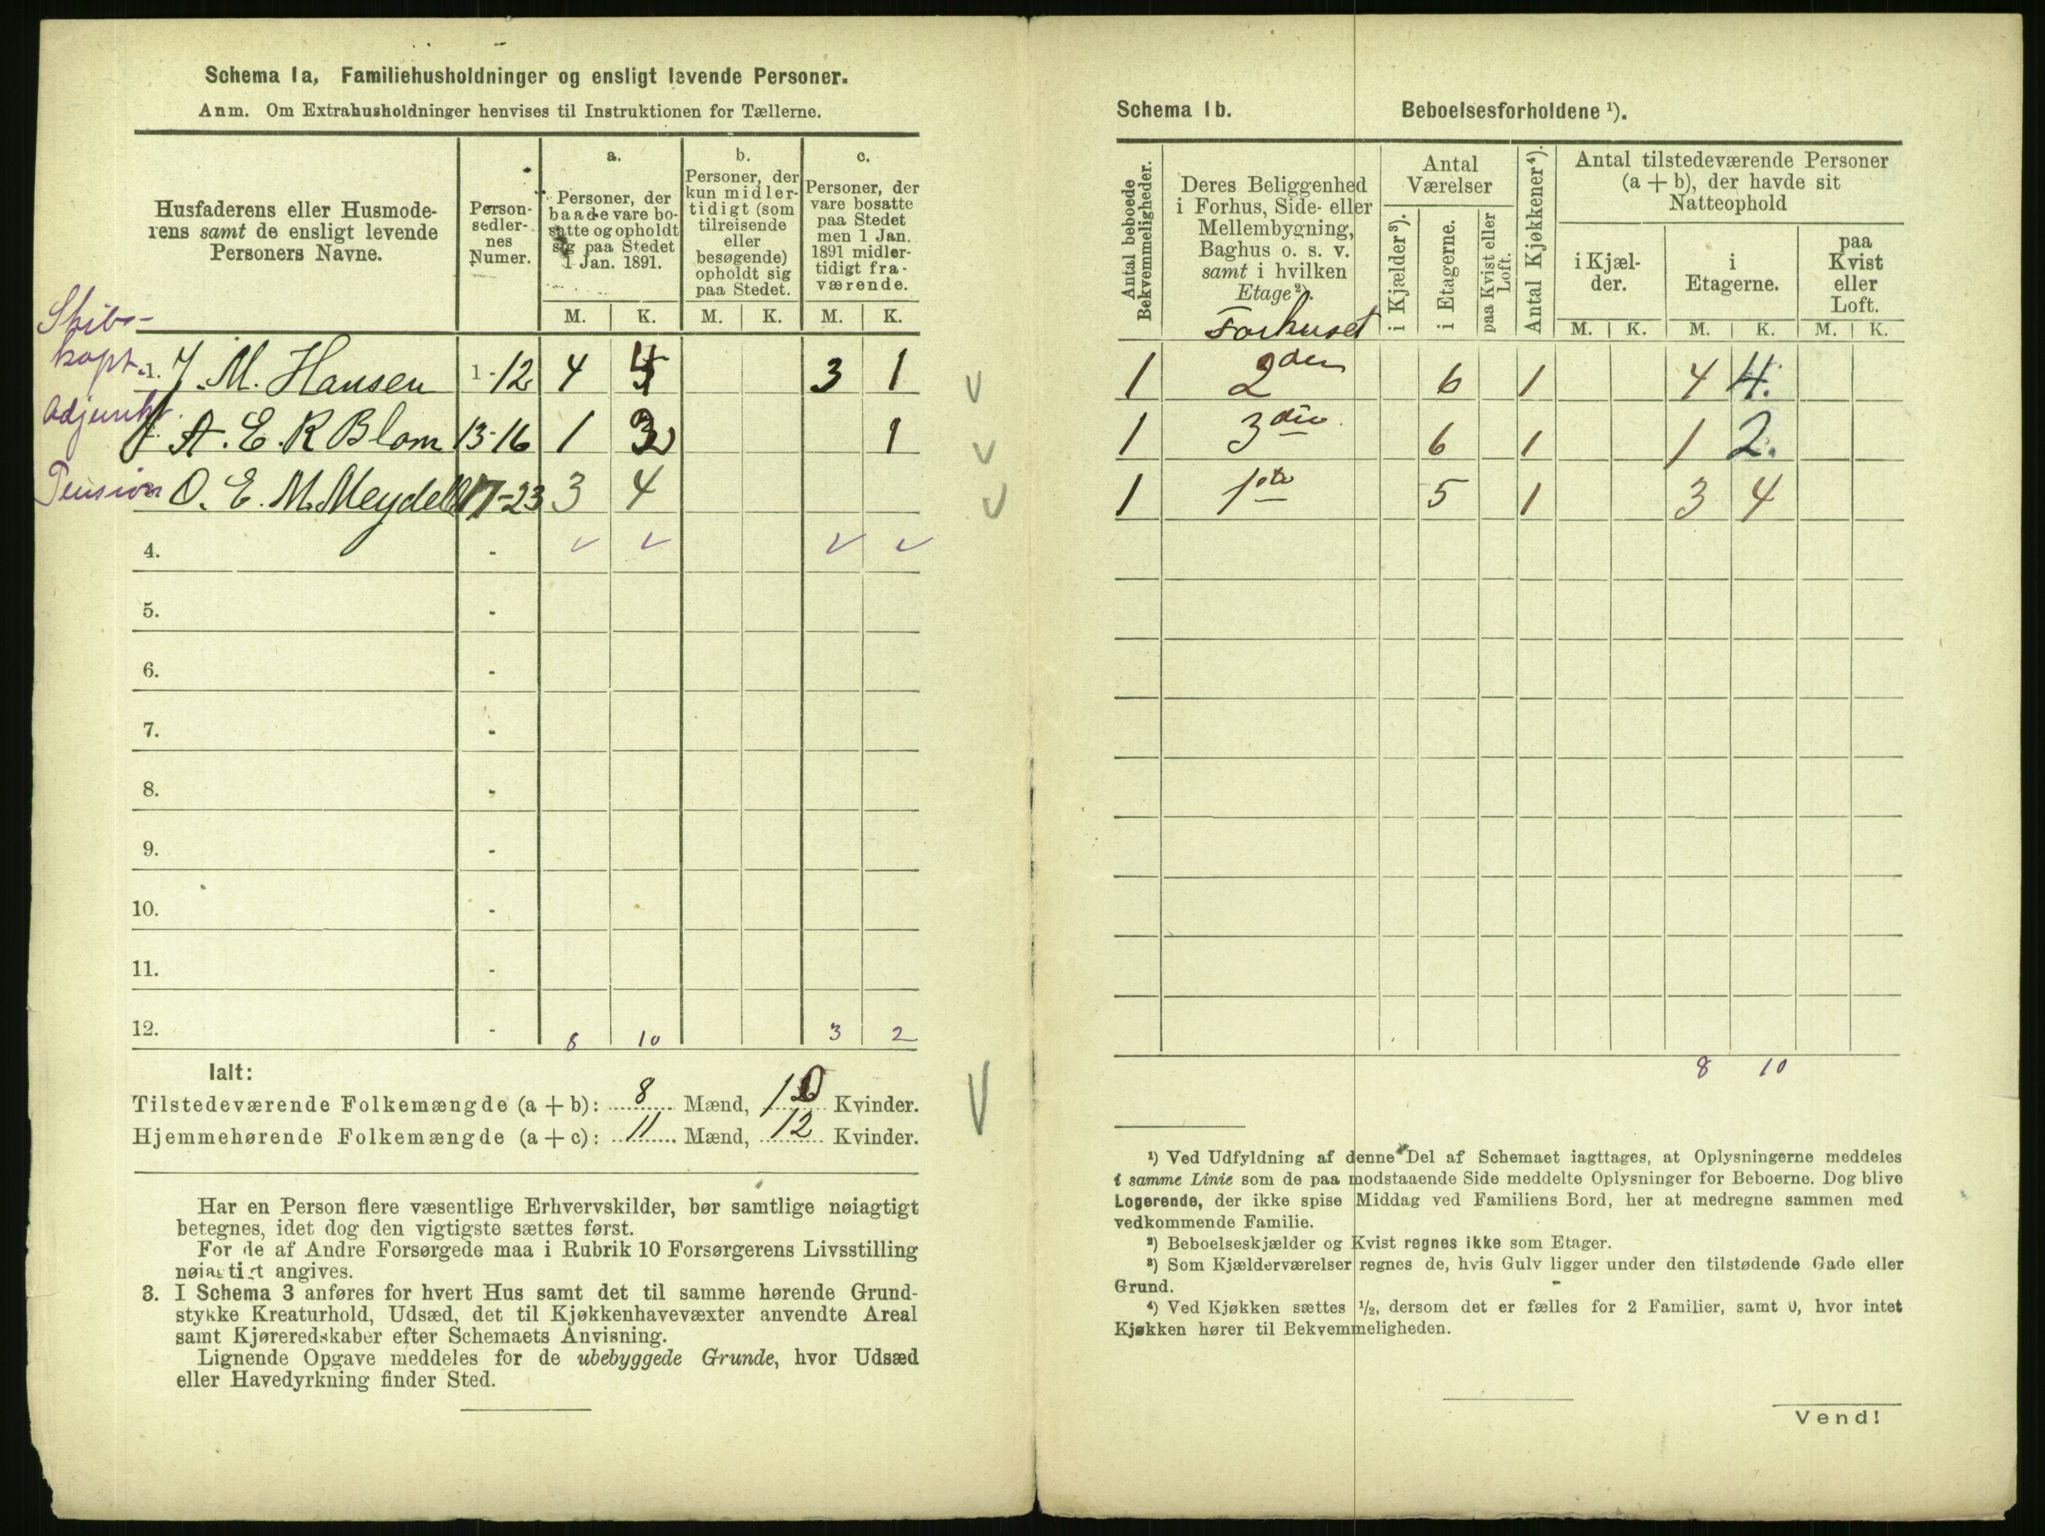 Schema 1a, Familiehusholdninger og ensligt levende Personer.
Anm. Om Extrahusholdninger henvises til Instruktionen for Tællerne.
Husfaderens eller Husmode-
rens samt de ensligt levende
Personers Navne.
Person-
sedler-
nes
Numer.
a.
Personer, der
baade vare bo-
satte og opholdt
sig paa Stedet
1 Jan. 1891.
b.
Personer, der
kun midler-
tidigt (som
tilreisende
eller
besøgende)
opholdt sig
paa Stedet.
c.
Personer, der
vare bosatte
paa Stedet
men 1 Jan.
1891 midler-
tidigt fra-
værende.
M. K. M. K. M. K.
Skibs-
kapt.
1. J. M. Hansen 1-12 4 4 3 1
Adjunkt
A. E. R Blom 13-16 1 2 1
Pension O. E. M. Meydell 17-23 3 4
4. -
5. -
6. -
7. -
8. -
9. -
10. -
11. -
12. - 8 10 3 2
Ialt:
Tilstedeværende Folkemængde (a + b): 8 Mænd, 10 Kvinder.
Hjemmehørende Folkemængde (a + c): 11 Mænd, 12 Kvinder.
Har en Person flere væsentlige Erhvervskilder, bør samtlige nøiagtigt
betegnes, idet dog den vigtigste sættes først.
For de af Andre Forsørgede maa i Rubrik 10 Forsørgerens Livsstilling
nøiagtigt angives.
3. I Schema 3 anføres for hvert Hus samt det til samme hørende Grund-
stykke Kreaturhold, Udsæd, det til Kjøkkenhavevæxter anvendte Areal
samt Kjøreredskaber efter Schemaets Anvisning.
Lignende Opgave meddeles for de ubebyggede Grunde, hvor Udsæd
eller Havedyrkning finder Sted.
Schema 1b. Beboelsesforholdene ¹).
Antal beboede
Bekvemmeligheder.
Deres Beliggenhed
i Forhus, Side- eller
Mellembygning,
Baghus o. s. v.
samt i hvilken
Etage²).
Forhuset
Antal
Værelser
i Kjælder³).
i Etagerne.
paa Kvist eller
Loft.
Antal Kjøkkener⁴).
Antal tilstedeværende Personer
(a + b), der havde sit
Natteophold
i Kjæl-
der.
i
Etagerne.
paa
Kvist
eller
Loft.
M. K. M. K. M. K.
1 2den 6 1 4 4.
1 3die 6 1 1 2.
1 1ste 5 1 3 4
8 10
¹) Ved Udfyldning af denne Del af Schemaet iagttages, at Oplysningerne meddeles
i samme Linie som de paa modstaaende Side meddelte Oplysninger for Beboerne. Dog blive
Logerende, der ikke spise Middag ved Familiens Bord, her at medregne sammen med
vedkommende Familie.
²) Beboelseskjælder og Kvist regnes ikke som Etager.
³) Som Kjælderværelser regnes de, hvis Gulv ligger under den tilstødende Gade eller
Grund.
⁴) Ved Kjøkken sættes ½, dersom det er fælles for 2 Familier, samt 0, hvor intet
Kjøkken hører til Bekvemmeligheden.
Vend!